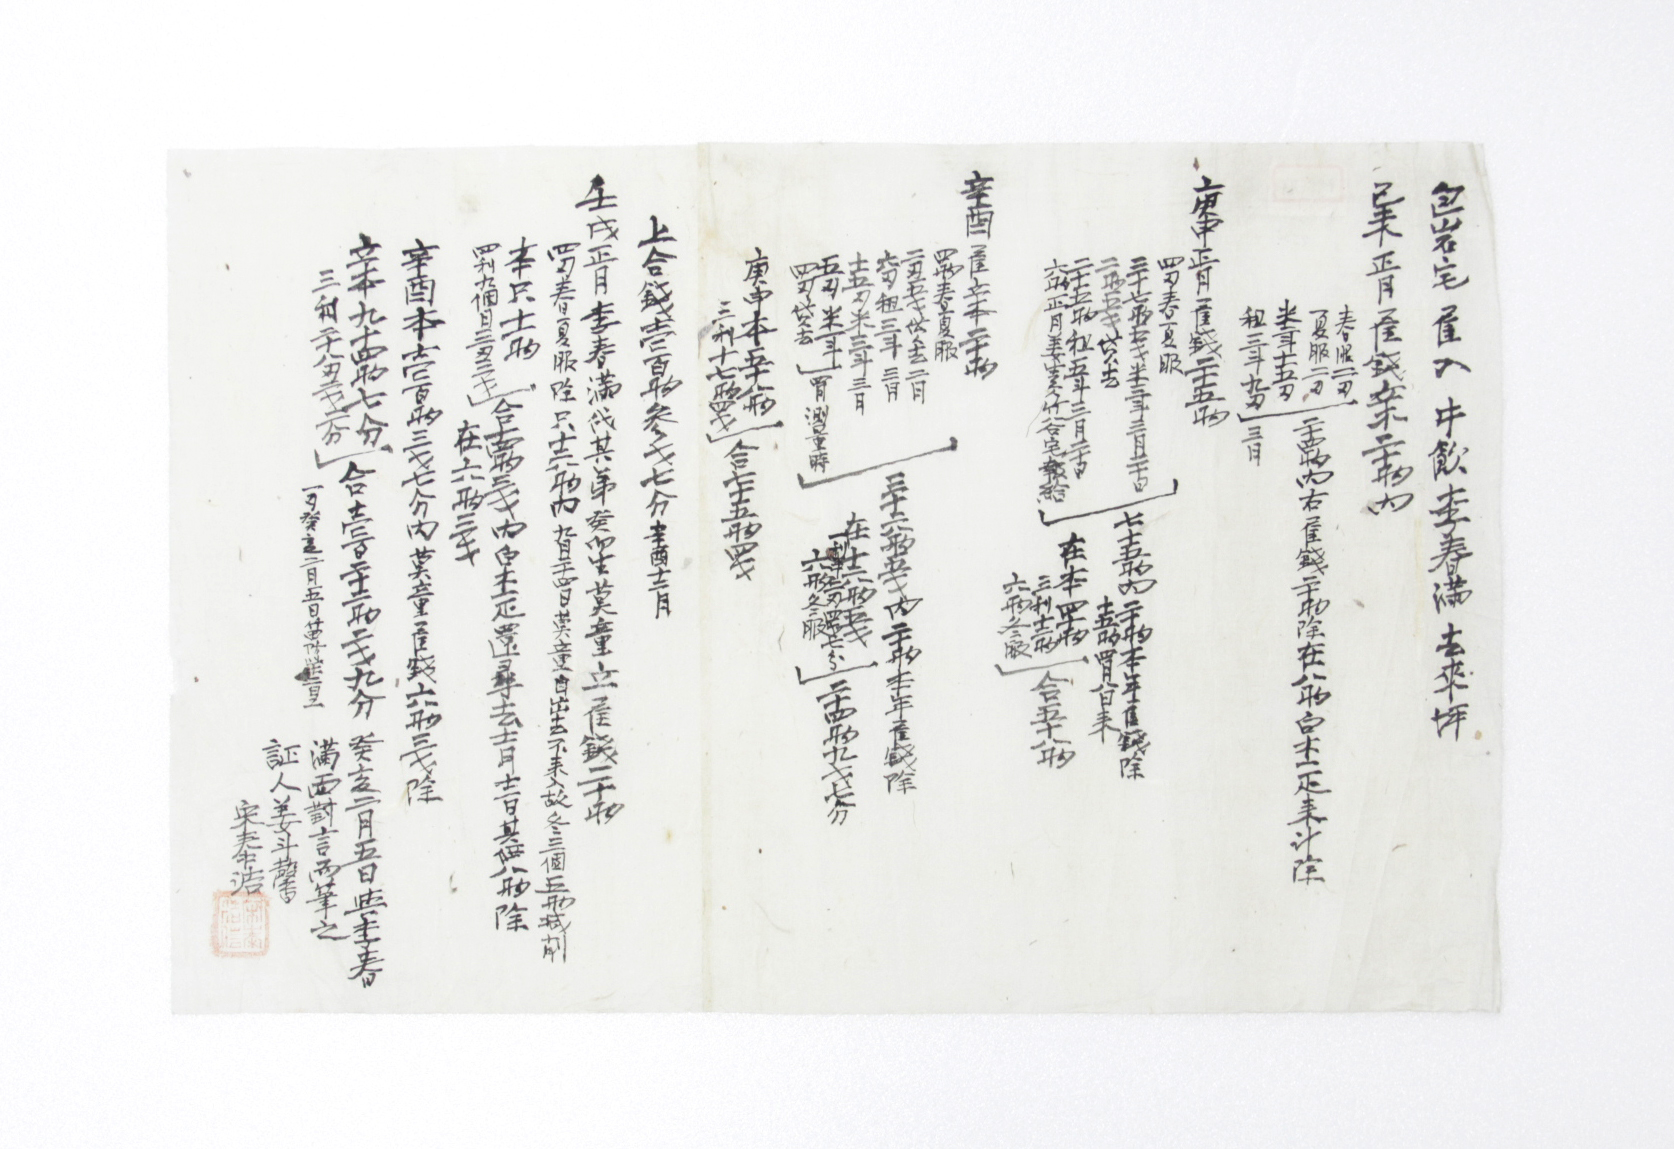 包岩宅雇入中飮李春滿去來坪
己未正月雇錢文本二十兩內
春服二刃
夏服二刃
米三斗十五刃
租三斗九刃
三日
二十四兩內右雇錢二十兩除在八兩白木一疋来計除
庚申正月雇錢二十五兩
四刃春夏服
三十七兩五戈米三斗三月二十日
二兩五戈貸去
二十五兩租五斗三月二十日
六兩正月姜素竹谷宅報給
七十五兩內二十兩本年雇錢除
十五兩四月八日来
在本四十兩
三利十二兩
六兩冬服
合五十八兩
辛酉雇文本二十兩
四兩春夏服
二刃五戈貸去二月
六刃租三斗三月
十五刃米三斗三月
五刃米一斗
四刃貸去
三十六兩五戈內二十兩本年雇錢除
在十六兩五戈
六兩冬服
二十四兩九戈七分
庚申本五十八兩
三利十七兩四戈
合七十五兩四戈
上合錢壹百兩參戈七分辛酉十二月
壬戌正月李春滿代其弟癸卯生莫童立雇錢二十兩
四刃春夏服除只十六兩內九月二十四日莫童自出去不来故冬三個五兩減削
本只十一兩
四利九個月三刃三戈
合十四兩三戈內白木一疋還尋去十月十二日其價八兩除
在六兩三戈
辛酉本壹百兩三戈七分內莫童雇錢六兩三戈除
文本九十四兩七分
三利二十八刃二戈二分
合壹百二十二兩二戈九分
癸亥二月五日與李春
滿面對言而筆之
証人姜斗馨
宋泰浩